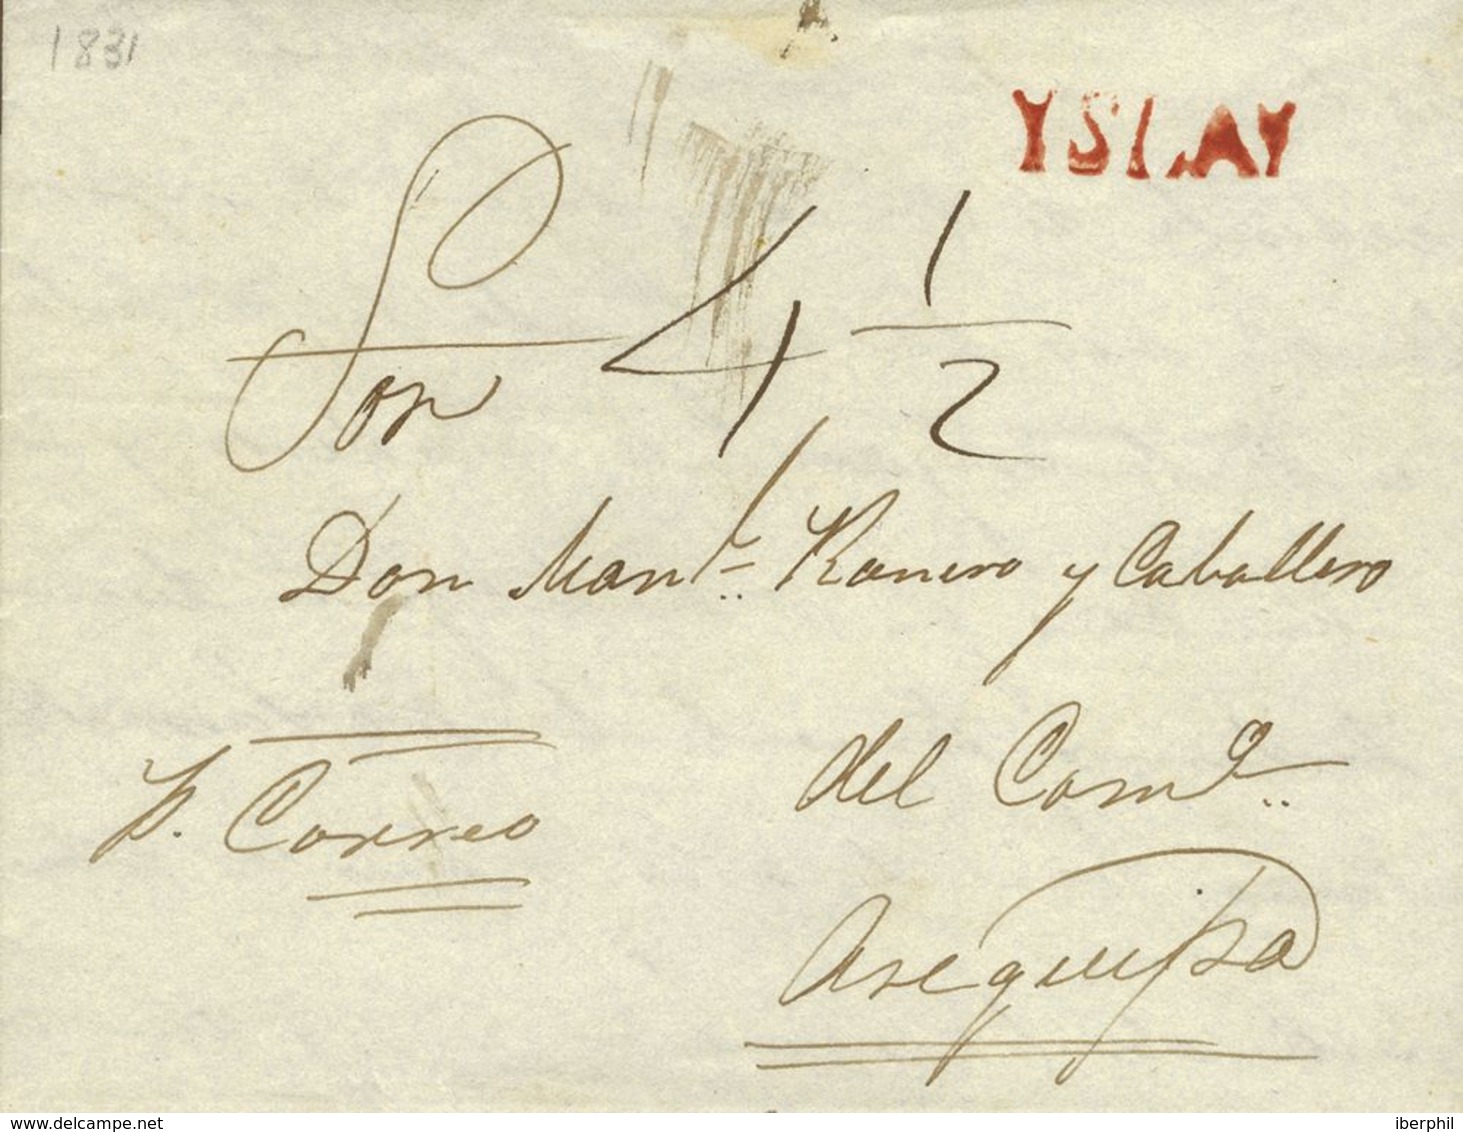 1831
YSLAY
Son 4 1/2
Don Manl. Ranero y Caballero
del Como.
P. Correo
Arequipa
delcampe.net
iberphil